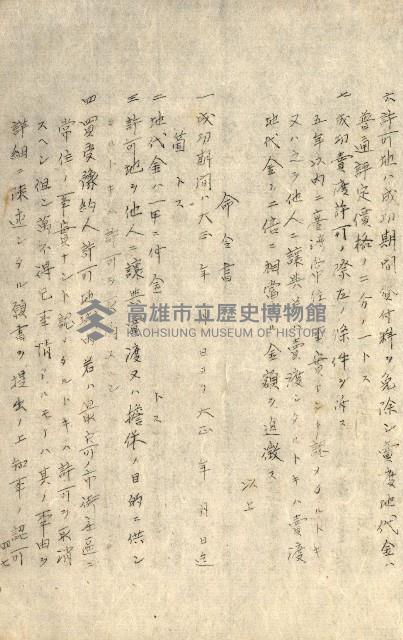 六 許可地ハ成功期間貸付料ヲ免除シ賣渡地代金ハ
普通評定價格ニ分ノ一トス
七 成功賣渡許可ノ際左ノ條件ヲ付ス
五年以内ニ臺灣常住ノ事實ナシト認メタルトキ
又ハ之ヲ他人ニ讓與若ハ賣渡シタルトキハ賣渡
地代金ノ二倍ニ相當スル金額ヲ追徴ス
以上
命令書
一 成功期間ハ大正 年 月 日ヨリ大正 年 月 日迄
箇 トス
二 地代金ハ一甲ニ付金 トス
三 許可地ヲ他人ニ讓與 渡又ハ擔保ノ目的ニ供シ
タルトキハ許可ヲ取消スヘシ
四 買受豫約人許可地 若ハ最モ可 市街 區ニ
常住ノ事實ナシト認メタルトキハ許可ヲ取消
スヘシ但シ萬不得已事情アルモノハ其ノ事由ヲ
詳細ニ陳述シタル願書ヲ提出ノ上知事ノ認可
四七
高雄市立歷史博物館
KAOHSIUNG MUSEUM OF HISTORY